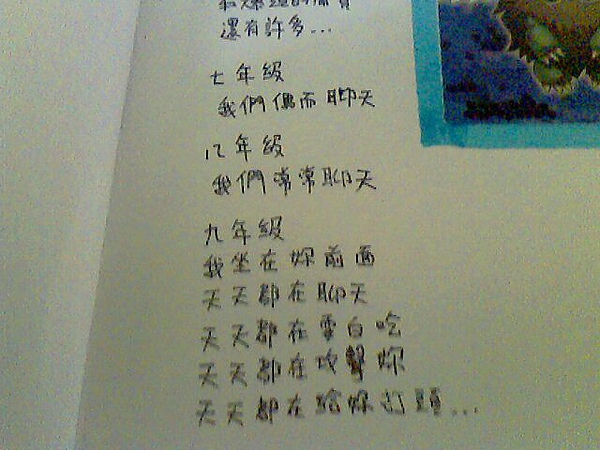 還有許多...
七年級
我們偶而聊天
八年級
我們常常聊天
九年級
我坐在妳前面
天天都在聊天
天天都在耍白吃
天天都在攻擊妳
天天都在給妳打頭...